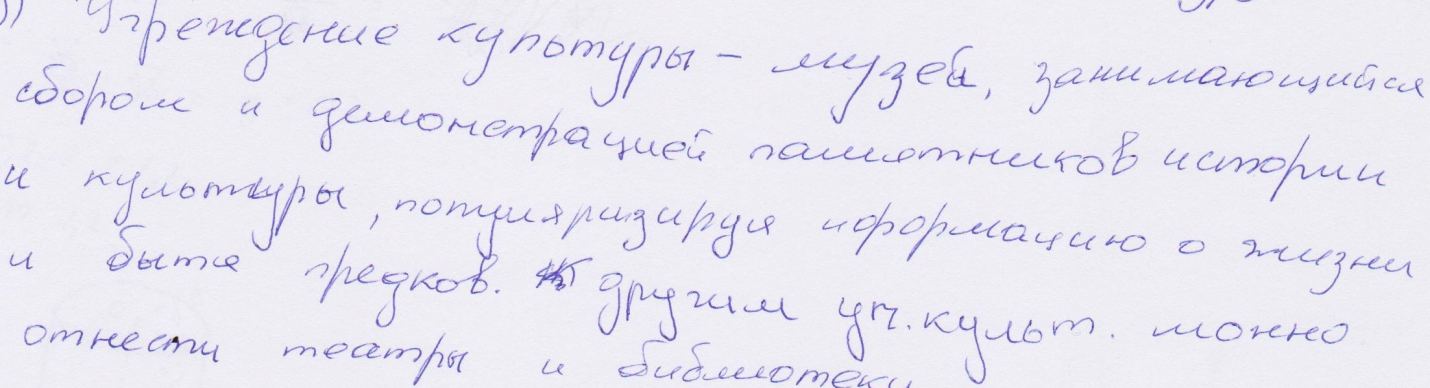 ) Учреждение культуры – музей, занимающийся
сбором и демонстрацией памятников истории
и культуры, популяризируя иформацию о жизни
и быте предков. К другим уч. культ. можно
отнести театры и библиотеки